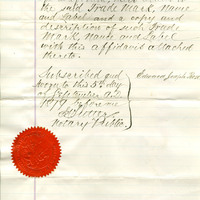 the said Trade Mark, Name
and Label and a copy and
description of such Trade
Mark, Name and Label
with this affidavit attached
thereto.
Subscribed and
Sworn to this 5th day
of September A.D.
1877 before me
Notary Public
Edward Joseph